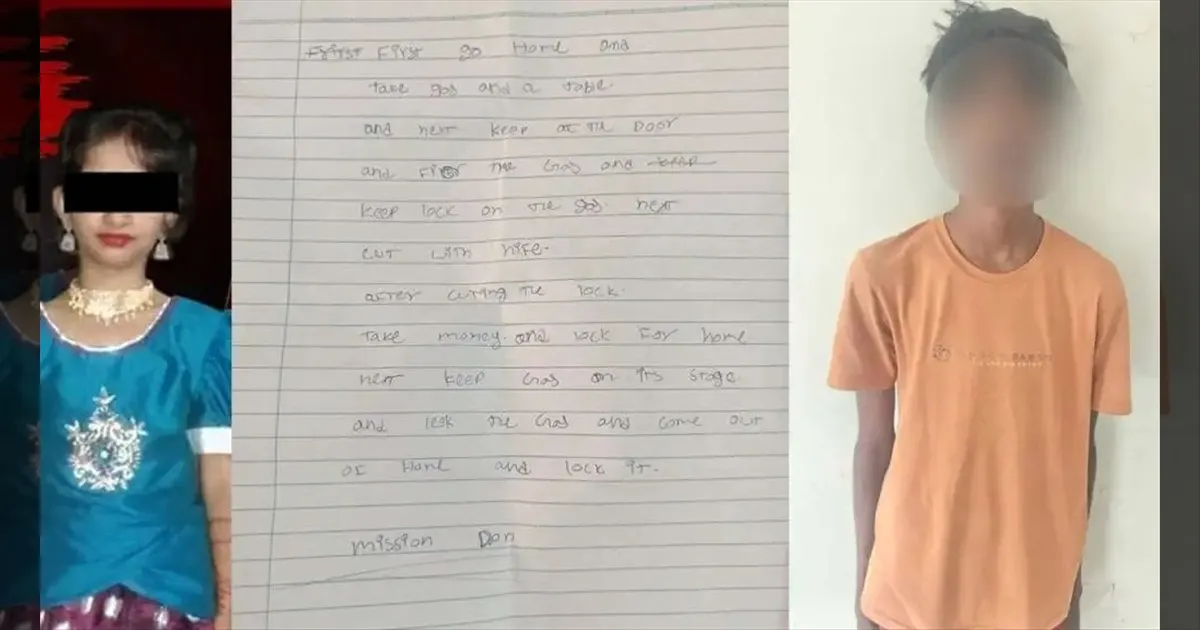 First First go Home and
take gas and a table.
and next keep at the Door
and fire the Gas and keep
keep lock on the gas. next
cut with nife.
after cuting the lock.
take money. and lock For home
next keep Gas on its stage
and leak the Gas and come out
of Home and lock it.
mission Don